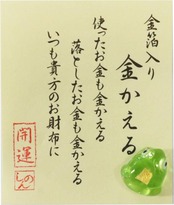 金箔入り
金かえる
使ったお金も金かえる
落としたお金も金かえる
いつも貴方のお財布に
開運